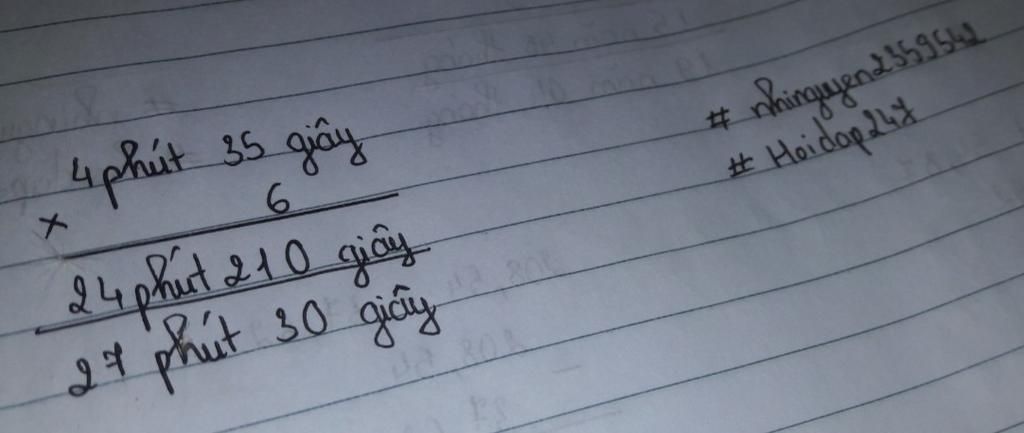 4 phút 35 giây
× 6
24 phút 210 giây
27 phút 30 giây
# nhinguyen2359542
# Hoidap247